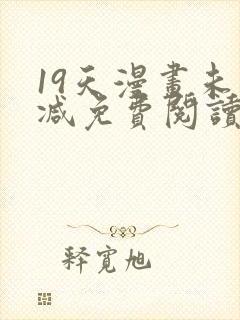 19天漫畫未
减免費閱讀
释寬旭